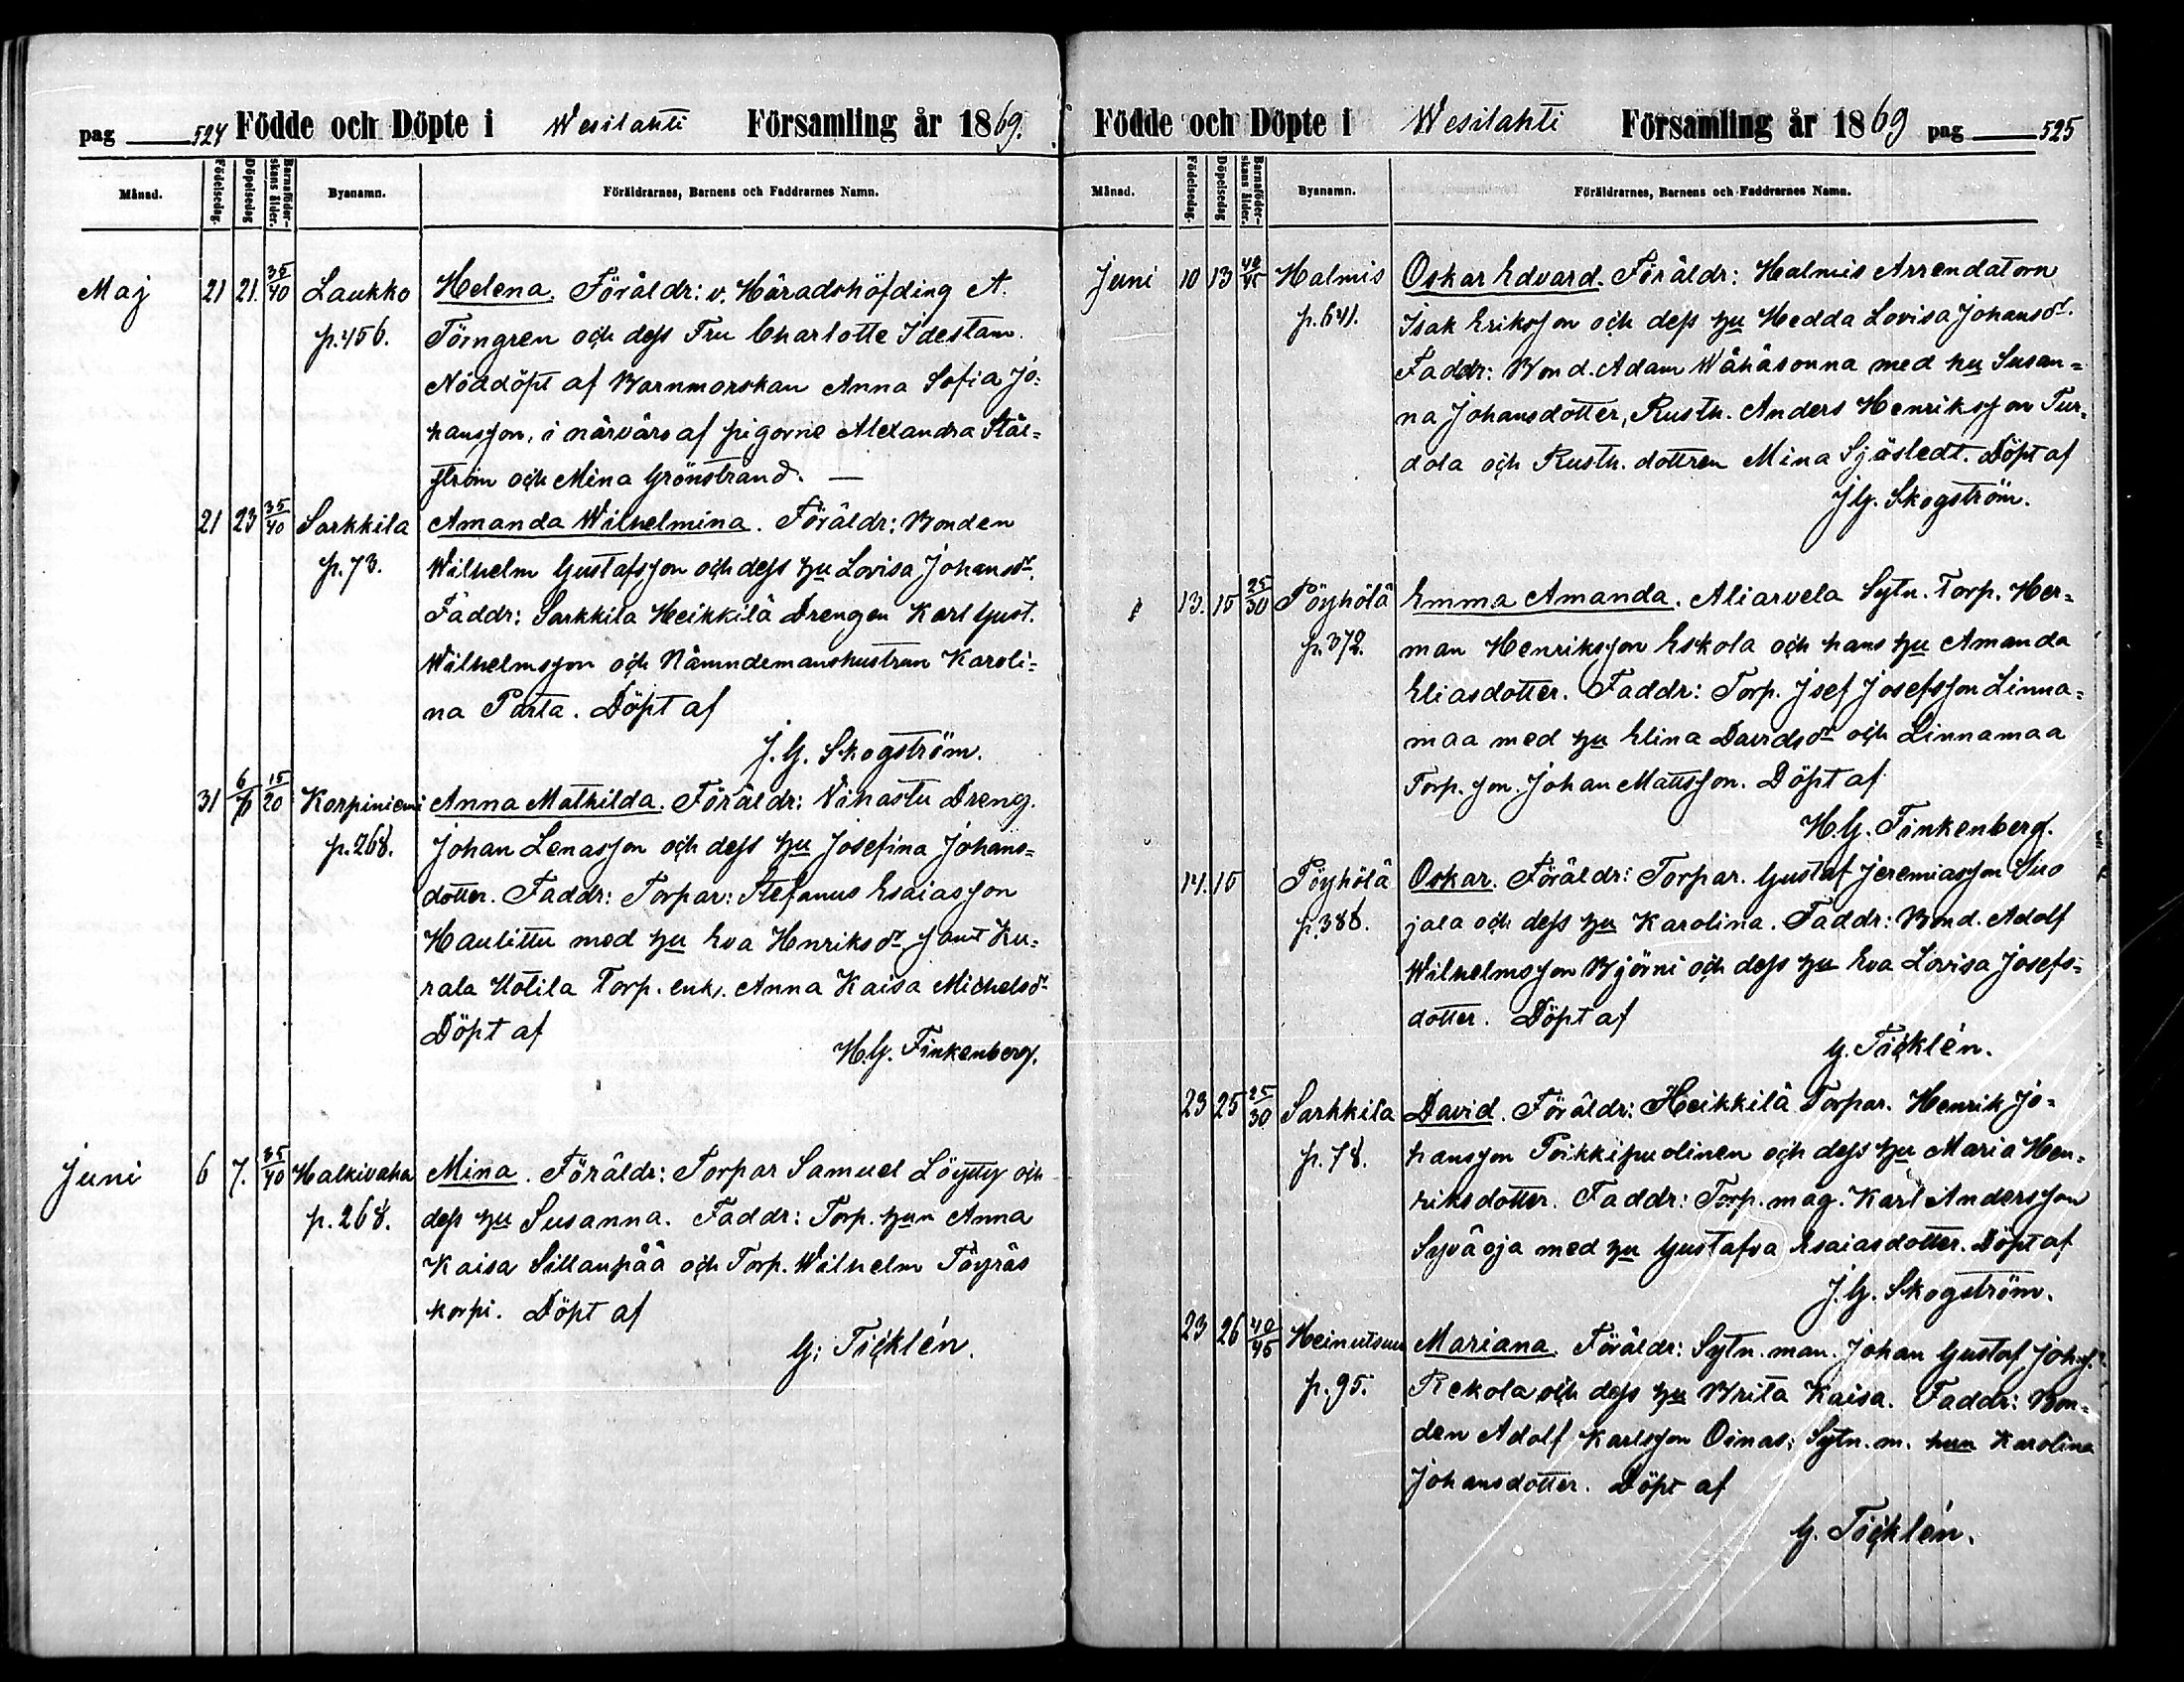 pag 524 Födde och Döpte i Wesilahti Församling år 1869.
Månad. Födelsedag. Döpelsedag Barnaföderskans ålder. Bysnamn. Föräldrarnes, Barnens och Faddrarnes Namn.
Maj 21 21. 35/40 Laukko Helena. Föräldr: v. Häradshöfding A.
p. 456. Törngren och dess Fru Charlotte Idestam.
Nöddöpt af Barnmorskan Anna Sofia Jo=
hansson, i närvaro af pigorne Alexandra Stål=
ström och Mina Grönstrand. —
21 23 35/40 Sarkkila Amanda Wilhelmina. Föräldr: Bonden
p. 73. Wilhelm Gustafsson och dess hu Lovisa Johansdr.
Faddr: Sarkkila Heikkilä Drengen Karl Gust.
Wilhelmsson och Nämndemanshustrun Karoli=
na Parta. Döpt af
J. G. Skogström.
31 6/6 15/20 Korpiniemi Anna Mathilda. Föräldr: Nihastu Dreng.
p. 268. Johan Lenasson och dess hu Josefina Johans=
dotter. Faddr: Torpar: Stefanus Esaiasson
Haulittu med hu Eva Henriksdr samt Ku=
rala Uotila Torp. enk. Anna Kaisa Michelsdr
Döpt af
H.G. Finkenberg.
Juni 6 7. 35/40 Halkivaha Mina. Föräldr: Torpar Samuel Löytty och
p. 268. dess hu Susanna. Faddr: Torp. hun Anna
Kaisa Sillanpää och Torp. Wilhelm Töyräs
korpi. Döpt af
G. Ticklén.
Födde och Döpte i Wesilahti Församling år 1869 pag 525
Månad. Födelsedag. Döpelsedag Barnaföderskans ålder. Bysnamn. Föräldrarnes, Barnens och Faddrarnes Namn.
Juni 10 13 40/45 Halmis Oskar Edvard. Föräldr: Halmis Arrendatorn
p. 641. Isak Eriksson och dess hu Hedda Lovisa Johansdr.
Faddr: Bond. Adam Wähäsonna med hu Susan=
na Johansdotter, Rusth. Anders Henriksson Tur=
dola och Rusth. dottren Mina Sjöstedt. Döpt af
J.G. Skogström.
13. 15 25/30 Pöyhölä Emma Amanda. Aliarvela Sytn. Torp. Her=
p. 372. man Henriksson Eskola och hans hu Amanda
Eliasdotter. Faddr: Torp. Jsef Josefsson Linna=
maa med hu Elina Davidsdr och Linnamaa
Torp. son. Johan Mattsson. Döpt af
H.G. Finkenberg.
14. 15 Pöyhölä Oskar. Föräldr: Torpar. Gustaf Jeremiasson Suo
p. 386. jala och dess hu Karolina. Faddr: Bond. Adolf
Wilhelmsson Björni och dess hu Eva Lovisa Josefs=
dotter. Döpt af
G. Ticklén.
23 25 25/30 Sarkkila David. Föräldr: Heikkilä Torpar. Henrik Jo=
p. 78. hansson Poikkipuolinen och dess hu Maria Hen=
riksdotter. Faddr: Torp. mag. Karl Andersson
Syväoja med hu Gustafva Esaiasdotter. Döpt af
J.G. Skogström.
23 26 40/45 Heinutsuu Mariana. Föräldr: Sytn. man. Johan Gustaf Johss.
p. 95. Rekola och dess hu Brita Kaisa. Faddr: Bon=
den Adolf Karlsson Oinas; Sytn. m. hun Karolina
Johansdotter. Döpt af
G. Ticklén.